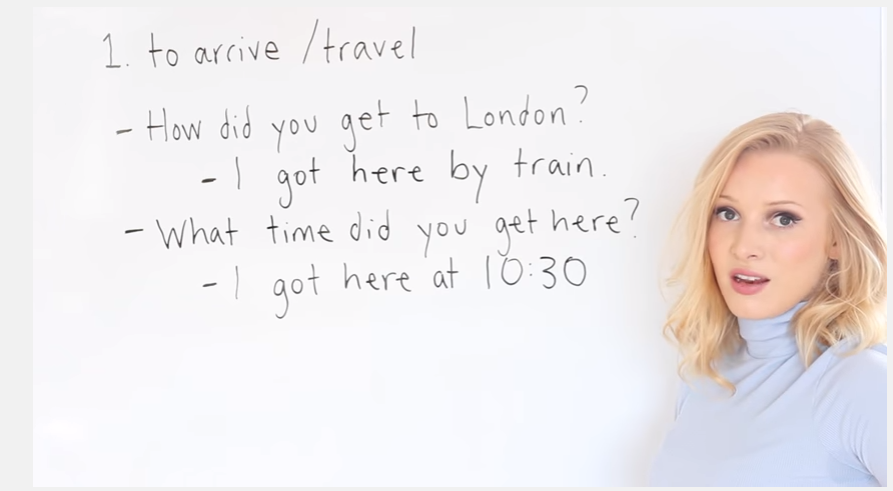 1. to arrive /travel
- How did you get to London?
- I got here by train.
- What time did you get here?
- I got here at 10:30